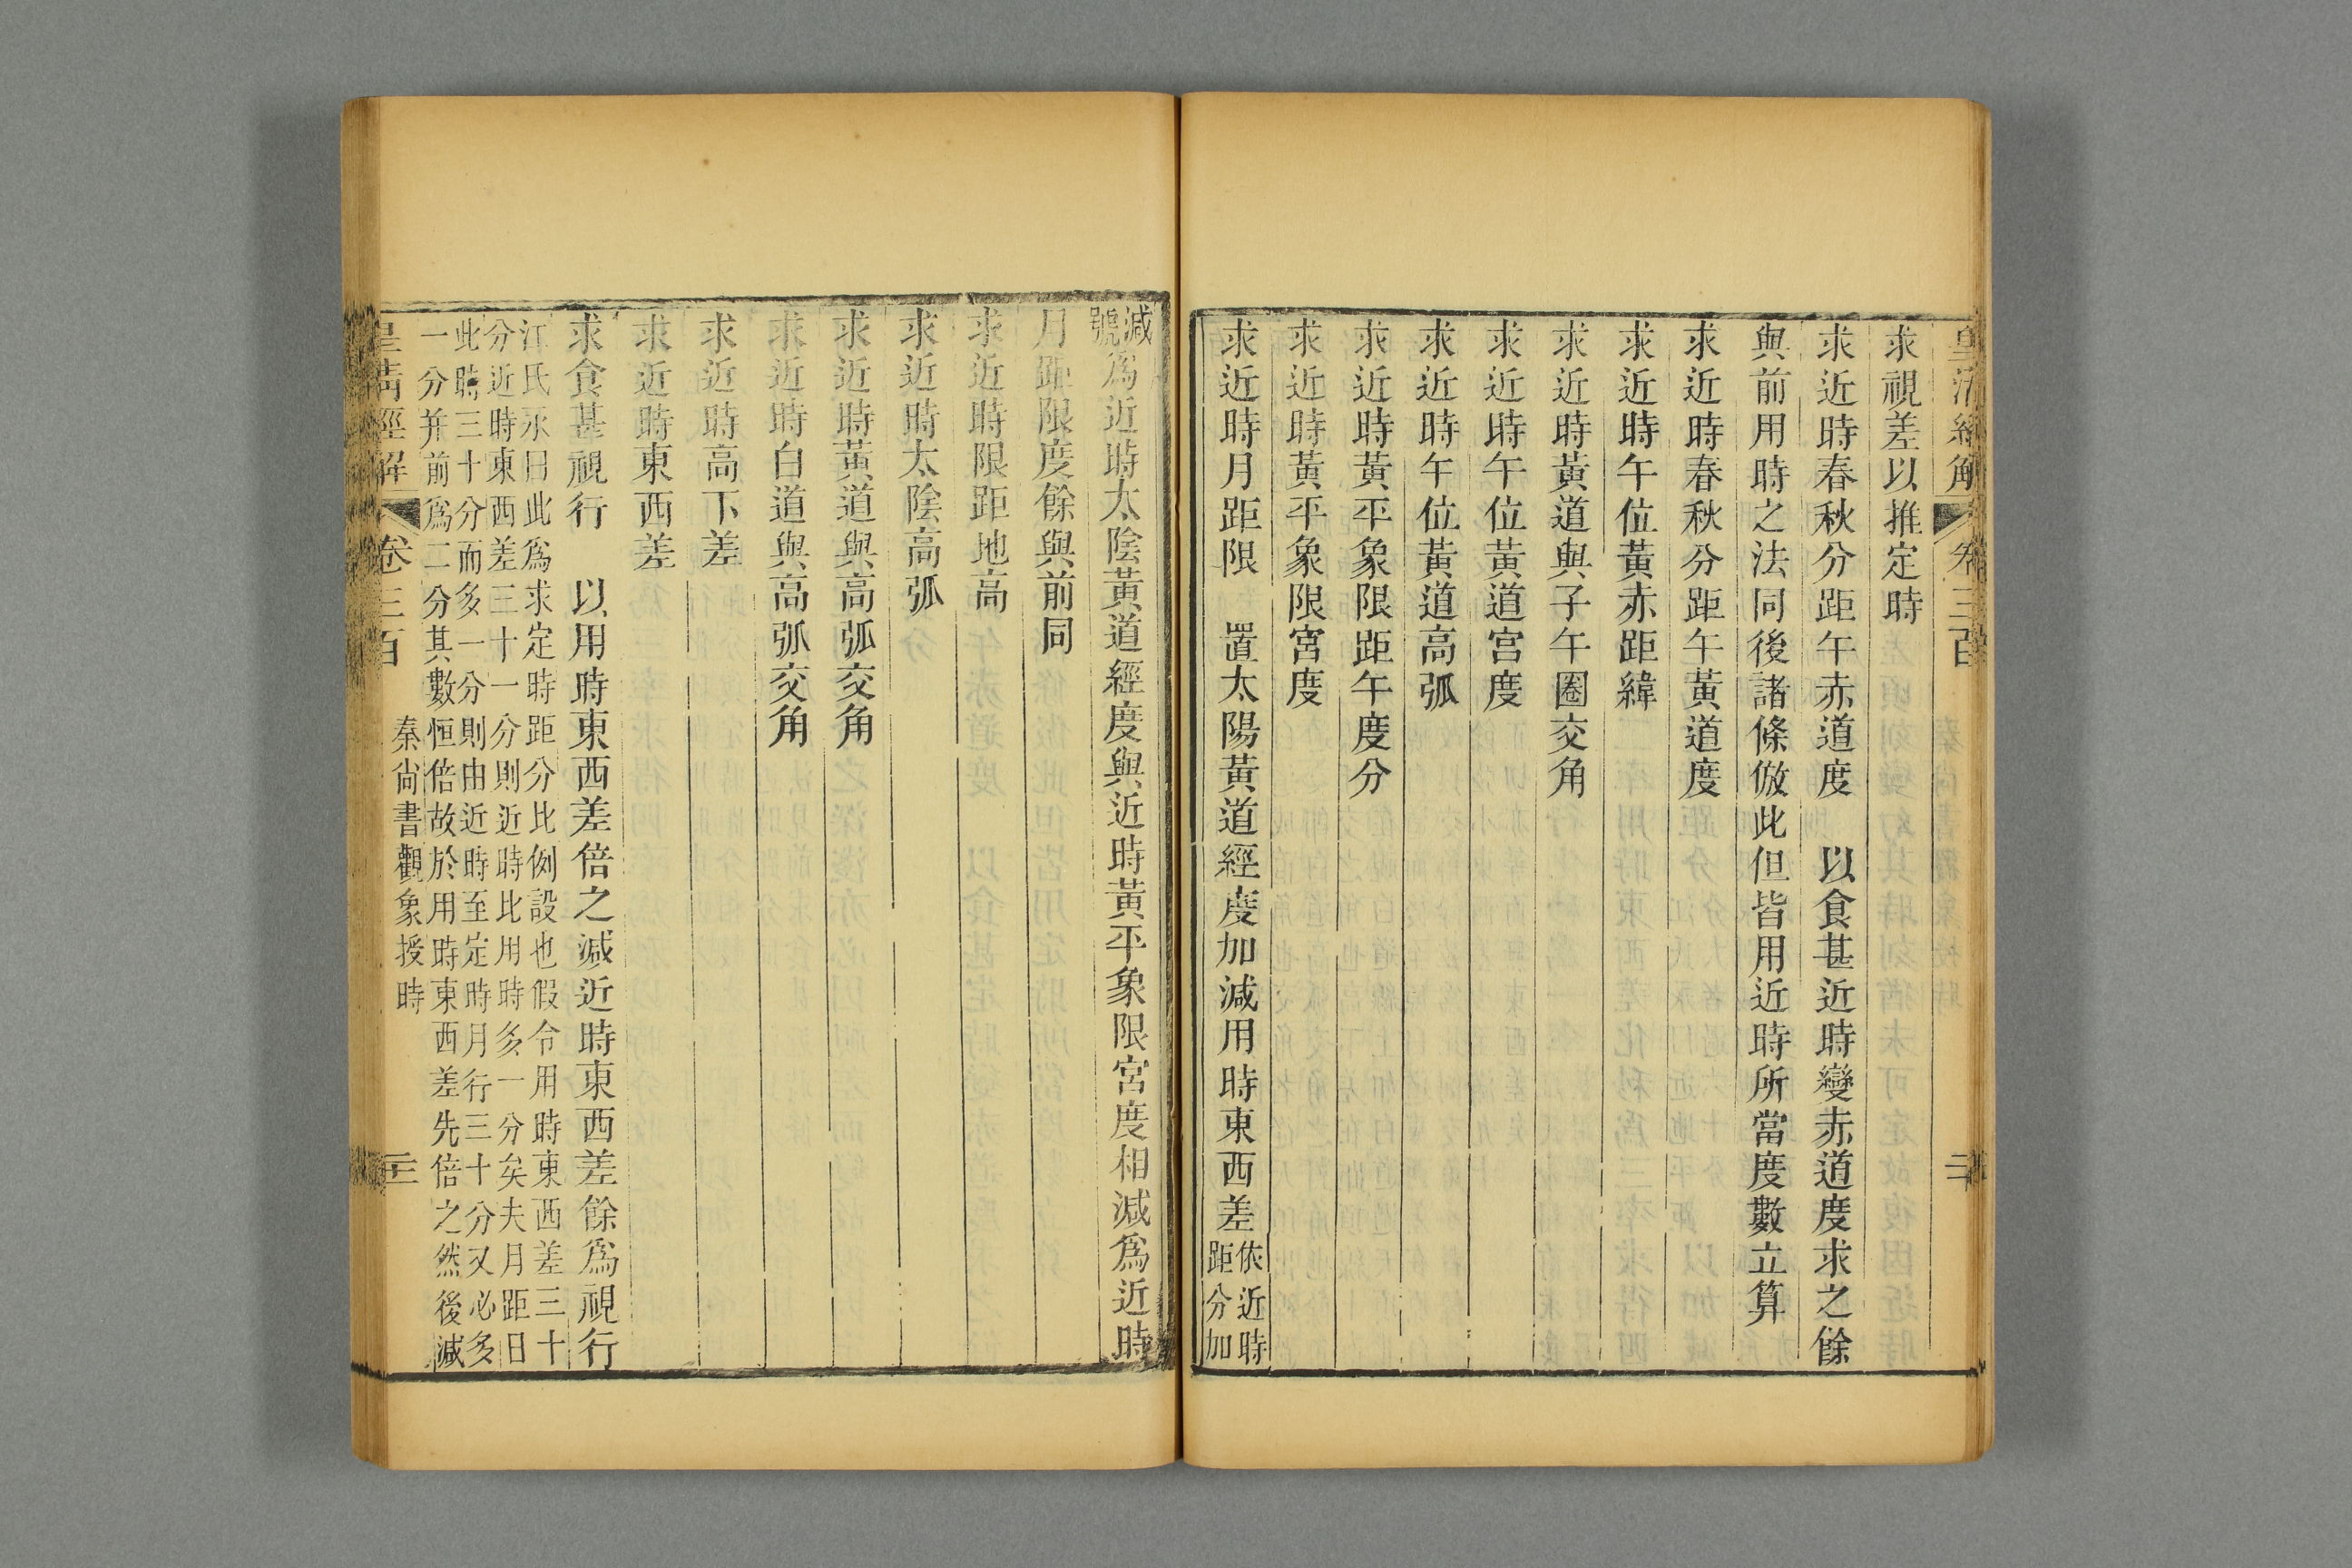 皇清經解 卷三百
求視差以推定時
求近時春秋分距午赤道度 以食甚近時變赤道度求之餘
與前用時之法同後諸條倣此但皆用近時所當度數立算
求近時春秋分距午黃道度
求近時午位黃赤距緯
求近時黃道與子午圈交角
求近時午位黃道宮度
求近時午位黃道高弧
求近時黃平象限距午度分
求近時黃平象限宮度
求近時月距限 置太陽黃道經度加減用時東西差依近時
距分加
減
號爲近時太陰黃道經度與近時黃平象限宮度相減爲近時
月距限度餘與前同
求近時限距地高
求近時太陰高弧
求近時黃道與高弧交角
求近時白道與高弧交角
求近時高下差
求近時東西差
求食甚視行 以用時東西差倍之減近時東西差餘爲視行
江氏永曰此爲求定時距分比例設也假令用時東西差三十
分近時東西差三十一分則近時比用時多一分矣夫月距日
此時三十分而多一分則由近時至定時月行三十分又必多
一分并前爲二分其數恒倍故於用時東西差先倍之然後減
秦尚書觀象授時
皇清經解 卷三百